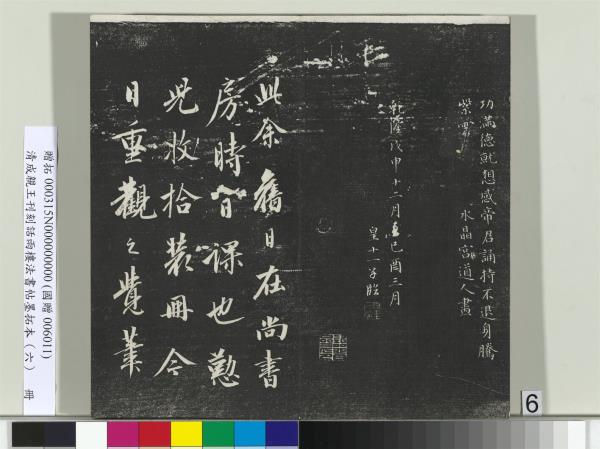 功滿德就想感帝君誦持不退身騰
紫霄
水晶宮道人書
乾隆戊申十二月至己酉三月
皇十一子臨
此余舊日在尚書
房時日課也懃
兒收拾裝冊今
日重觀之覺筆
贈拓 000315N000000000 (國贈 006011)
清成親王刊刻話雨樓法書帖墨拓本（六） 冊
6